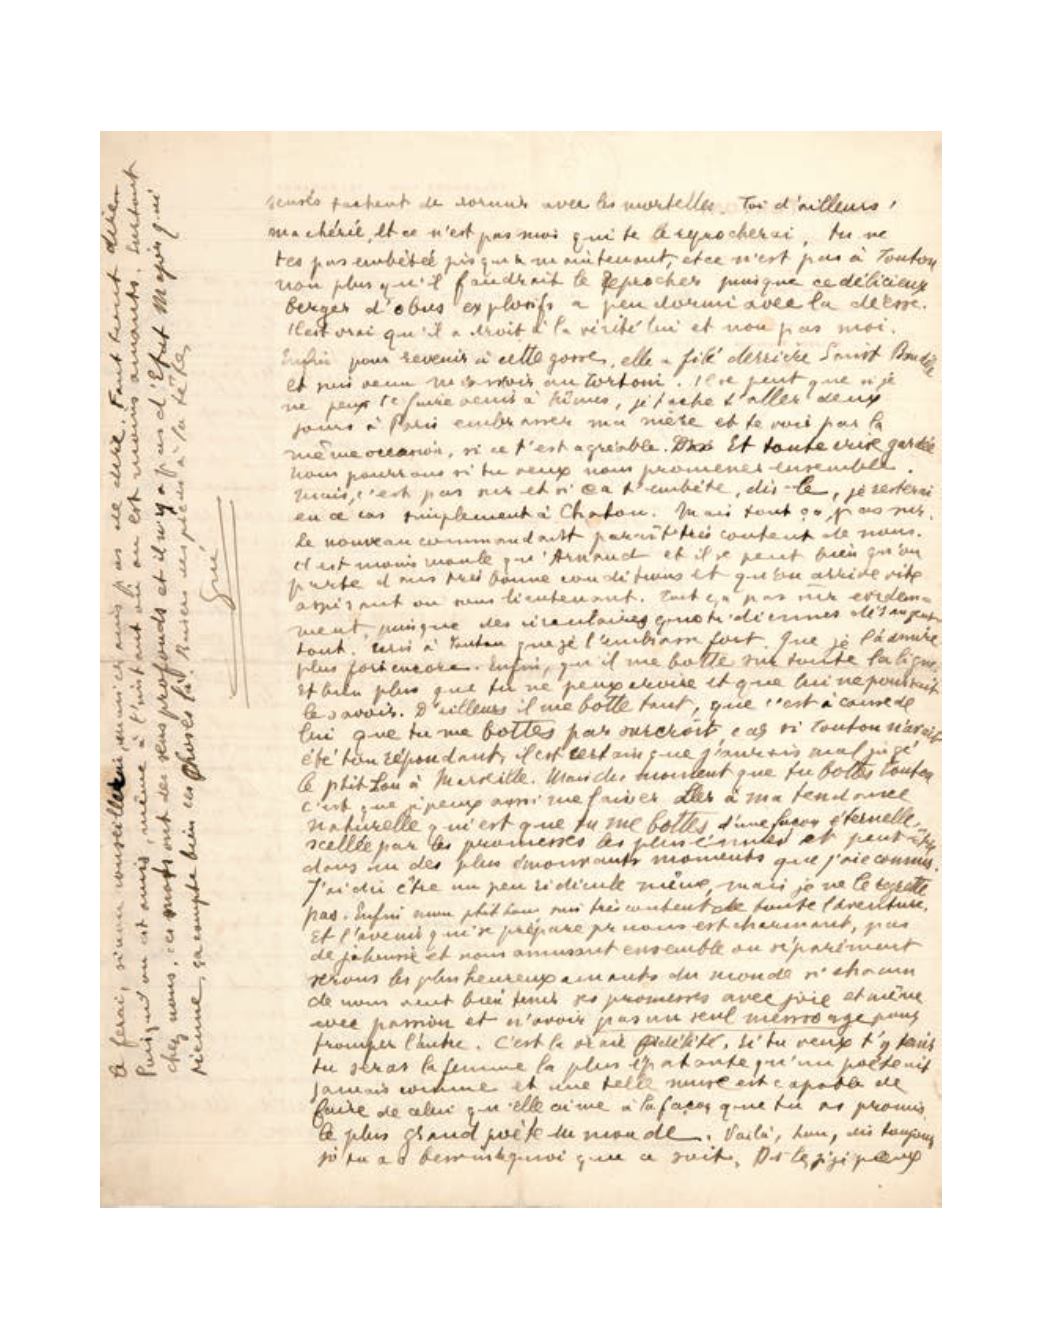 sensés tachent de dormir avec les mortelles. Toi d'ailleurs,
ma chérie, et ce n'est pas moi qui te le reprocherai, tu ne
t'es pas embêtée jusqu'à maintenant, et ce n'est pas à Toutou
non plus qu'il faudrait le reprocher puisque ce délicieux
berger d'obus explosifs a peu dormi avec la déesse.
Il est vrai qu'il a droit à la vérité lui et non pas moi.
Enfin pour revenir à cette gosse, elle a filé derrière Saint Baudile
et suis venu m'asseoir au Tortoni. Il se peut que si je
ne peux te faire venir à Nîmes, je tâche d'aller deux
jours à Paris embrasser ma mère et te voir par la
même occasion, si ce t'est agréable. Et toute ruse gardée
nous pourrons si tu veux nous promener ensemble.
Mais, c'est pas sûr et si ça t'embête, dis-le, je resterai
en ce cas simplement à Chatou. Mais tout ça, pas sûr.
Le nouveau commandant paraît très content de nous.
Il est moins moule qu'Arnaud et il se peut bien qu'on
parte dans très bonne conditions et qu'on arrive vite
aspirant ou sous lieutenant. Tout ça pas sûr évidem-
ment, puisque des circulaires quotidiennes
tout. Écris à Toutou que je l'embrasse fort. Que je l'admire
plus fort encore. Enfin, qu'il me botte sur toute la ligne.
Et bien plus que tu ne peux croire et que lui ne pourrait
le savoir. D'ailleurs il me botte tant, que c'est à cause de
lui que tu me bottes par surcroît, car si Toutou n'avait
été ton répondant, il est certain que j'aurais mal jugé
le ptit Lou à Marseille. Mais du moment que tu bottes Toutou
c'est que je peux aussi me laisser aller à ma tendance
naturelle qui est que tu me bottes d'une façon éternelle,
scellée par les promesses les plus et peut-être
dans un des plus émouvants moments que j'aie connus.
J'ai dû être un peu ridicule même, mais je ne le regrette
pas. Enfin mon ptit Lou suis très content de toute l'aventure.
Et l'avenir qui se prépare pr nous est charmant, pas
de jalousie et nous amusant ensemble ou séparément
serons les plus heureux amants du monde si chacun
de nous veut bien tenir ses promesses avec joie et même
avec passion et n'avoir pas un seul mensonge pour
tromper l'autre. C'est la vraie fidélité. Si tu veux t'y tenir
tu seras la femme la plus épatante qu'un poète ait
jamais connue et une telle muse est capable de
faire de celui qu'elle aime à la façon que tu as promis
le plus grand poète du monde. Voilà, Lou, dis toujours
si tu as besoin de quoi que ce soit. si je peux
le ferai, sinon conseillerai, mais pas de dire. Faut tout dire
Puisqu'on est amis, même à l'instant où on est moins amants. Surtout
chez nous, ces mots ont des sens profonds et il n'y a pas d'Etat Major qui
tienne, ça compte bien ces choses-là. Baisers des pieds à la tête.
Gui